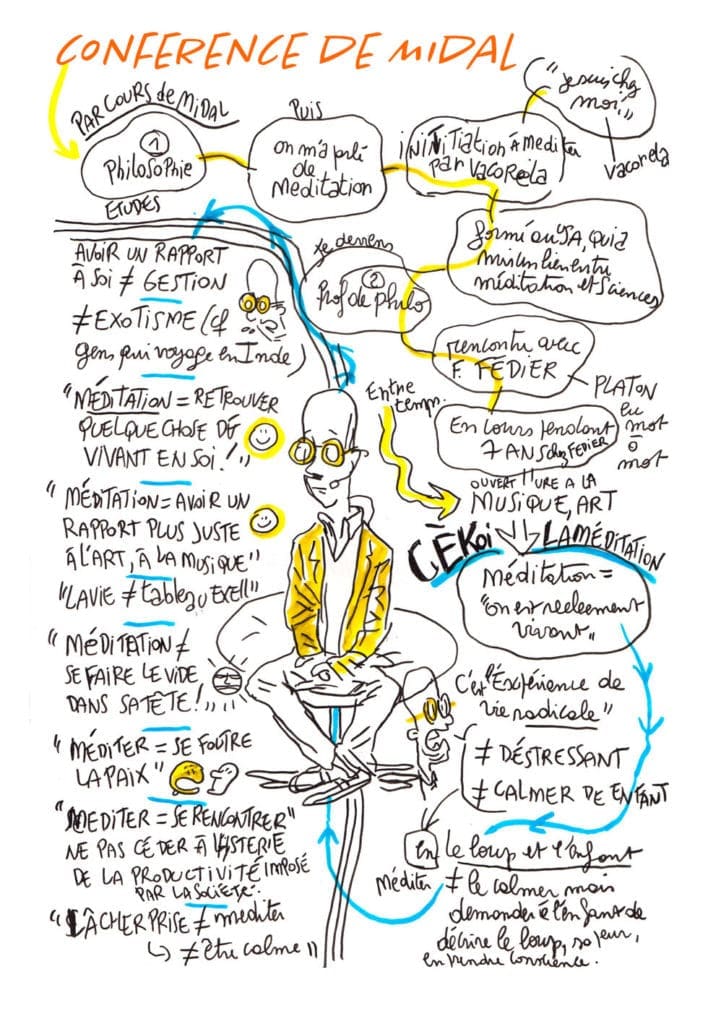 CONFERENCE DE MIDAL
PARCOURS de MIDAL
①
PHILOSOPHIE
ETUDES
Puis
on m'a parlé
de
MEDITATION
iNiNiTiation à MEDiter
par VACORELA
"Je suis chez
moi"
Vacorela
formé au USA, qui a
mis un lien entre
méditation et Sciences
Je deviens
②
Prof de philo
rencontre avec
F. FEDIER
PLATON
mot
à
mot
En cours pendant
7 ANS chez FEDIER
Entre
temps.
OUVERTURE A LA
MUSIQUE, ART
CÈKOI LA MÉDITATION
Méditation =
"on est réellement
vivant"
C'est "l'Expérience de
vie radicale"
≠ DÉSTRESSANT
≠ CALMER DE ENFANT
Le loup et l'enfant
Méditer ≠ le calmer mais
demander à l'enfant de
décrire le loup, sa peur,
en prendre conscience.
AVOIR UN RAPPORT
À SOI ≠ GESTION
≠ EXOTISME (cf
gens qui voyage en Inde)
"MÉDITATION = RETROUVER
QUELQUE CHOSE DE
VIVANT EN SOI !"
"MÉDITATION = AVOIR UN
RAPPORT PLUS JUSTE
À L'ART, À LA MUSIQUE"
"LA VIE ≠ tableau EXELL"
"MÉDITATION ≠
SE FAIRE LE VIDE
DANS SA TÊTE !"
"MÉDITER = SE FOUTRE
LA PAIX"
"MEDITER = SE RENCONTRER"
NE PAS CÉDER À L'HYSTERIE
DE LA PRODUCTIVITÉ IMPOSÉ
PAR LA SOCIETE.
"LÂCHER PRISE ≠ mediter
↳ ≠ être calme"